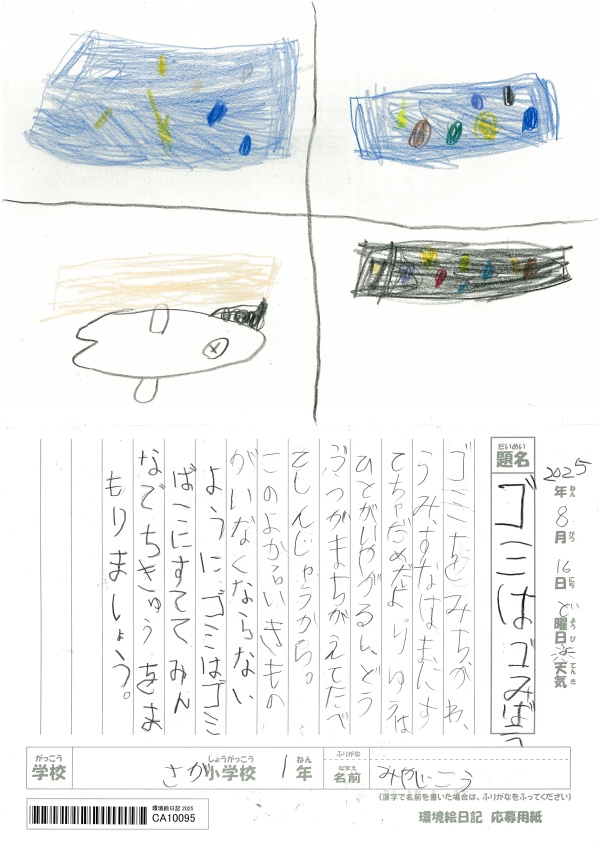 2025年8月16日ど曜日 天気
ねん がつ にち ようび てんき
だいめい
題名 ゴミはゴみば
ゴミをみちかわ、
うみ、すなはまにす
てちゃだめだよ。りゆうは
ひとがいやがるし、どう
ぶつがまちがえてたべ
てしんじゃうから。
このよからいきもの
がいなくならない
ように、ゴミはゴミ
ばこにすてて みん
なでちきゅうをま
もりましょう。
がっこう しょうがっこう ねん ふりがな
学校 さが小学校 1年
なまえ
名前 こう
(漢字で名前を書いた場合は、ふりがなをふってください)
環境絵日記 2025
CA10095
環境絵日記 応募用紙